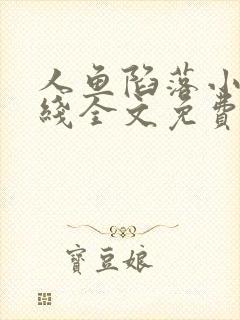 人鱼陷落小
綫全文免費
寶豆娘